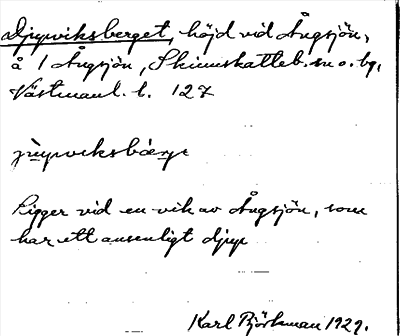 Djupviksberget, höjd vid Ångsjön,
å 1 Ångsjön, Skinnskatteb. sn o. bg,
Västmanl. l. 127
Ligger vid en vik av Ångsjön, som
har ett ansenligt djup
Karl Björkman 1929.